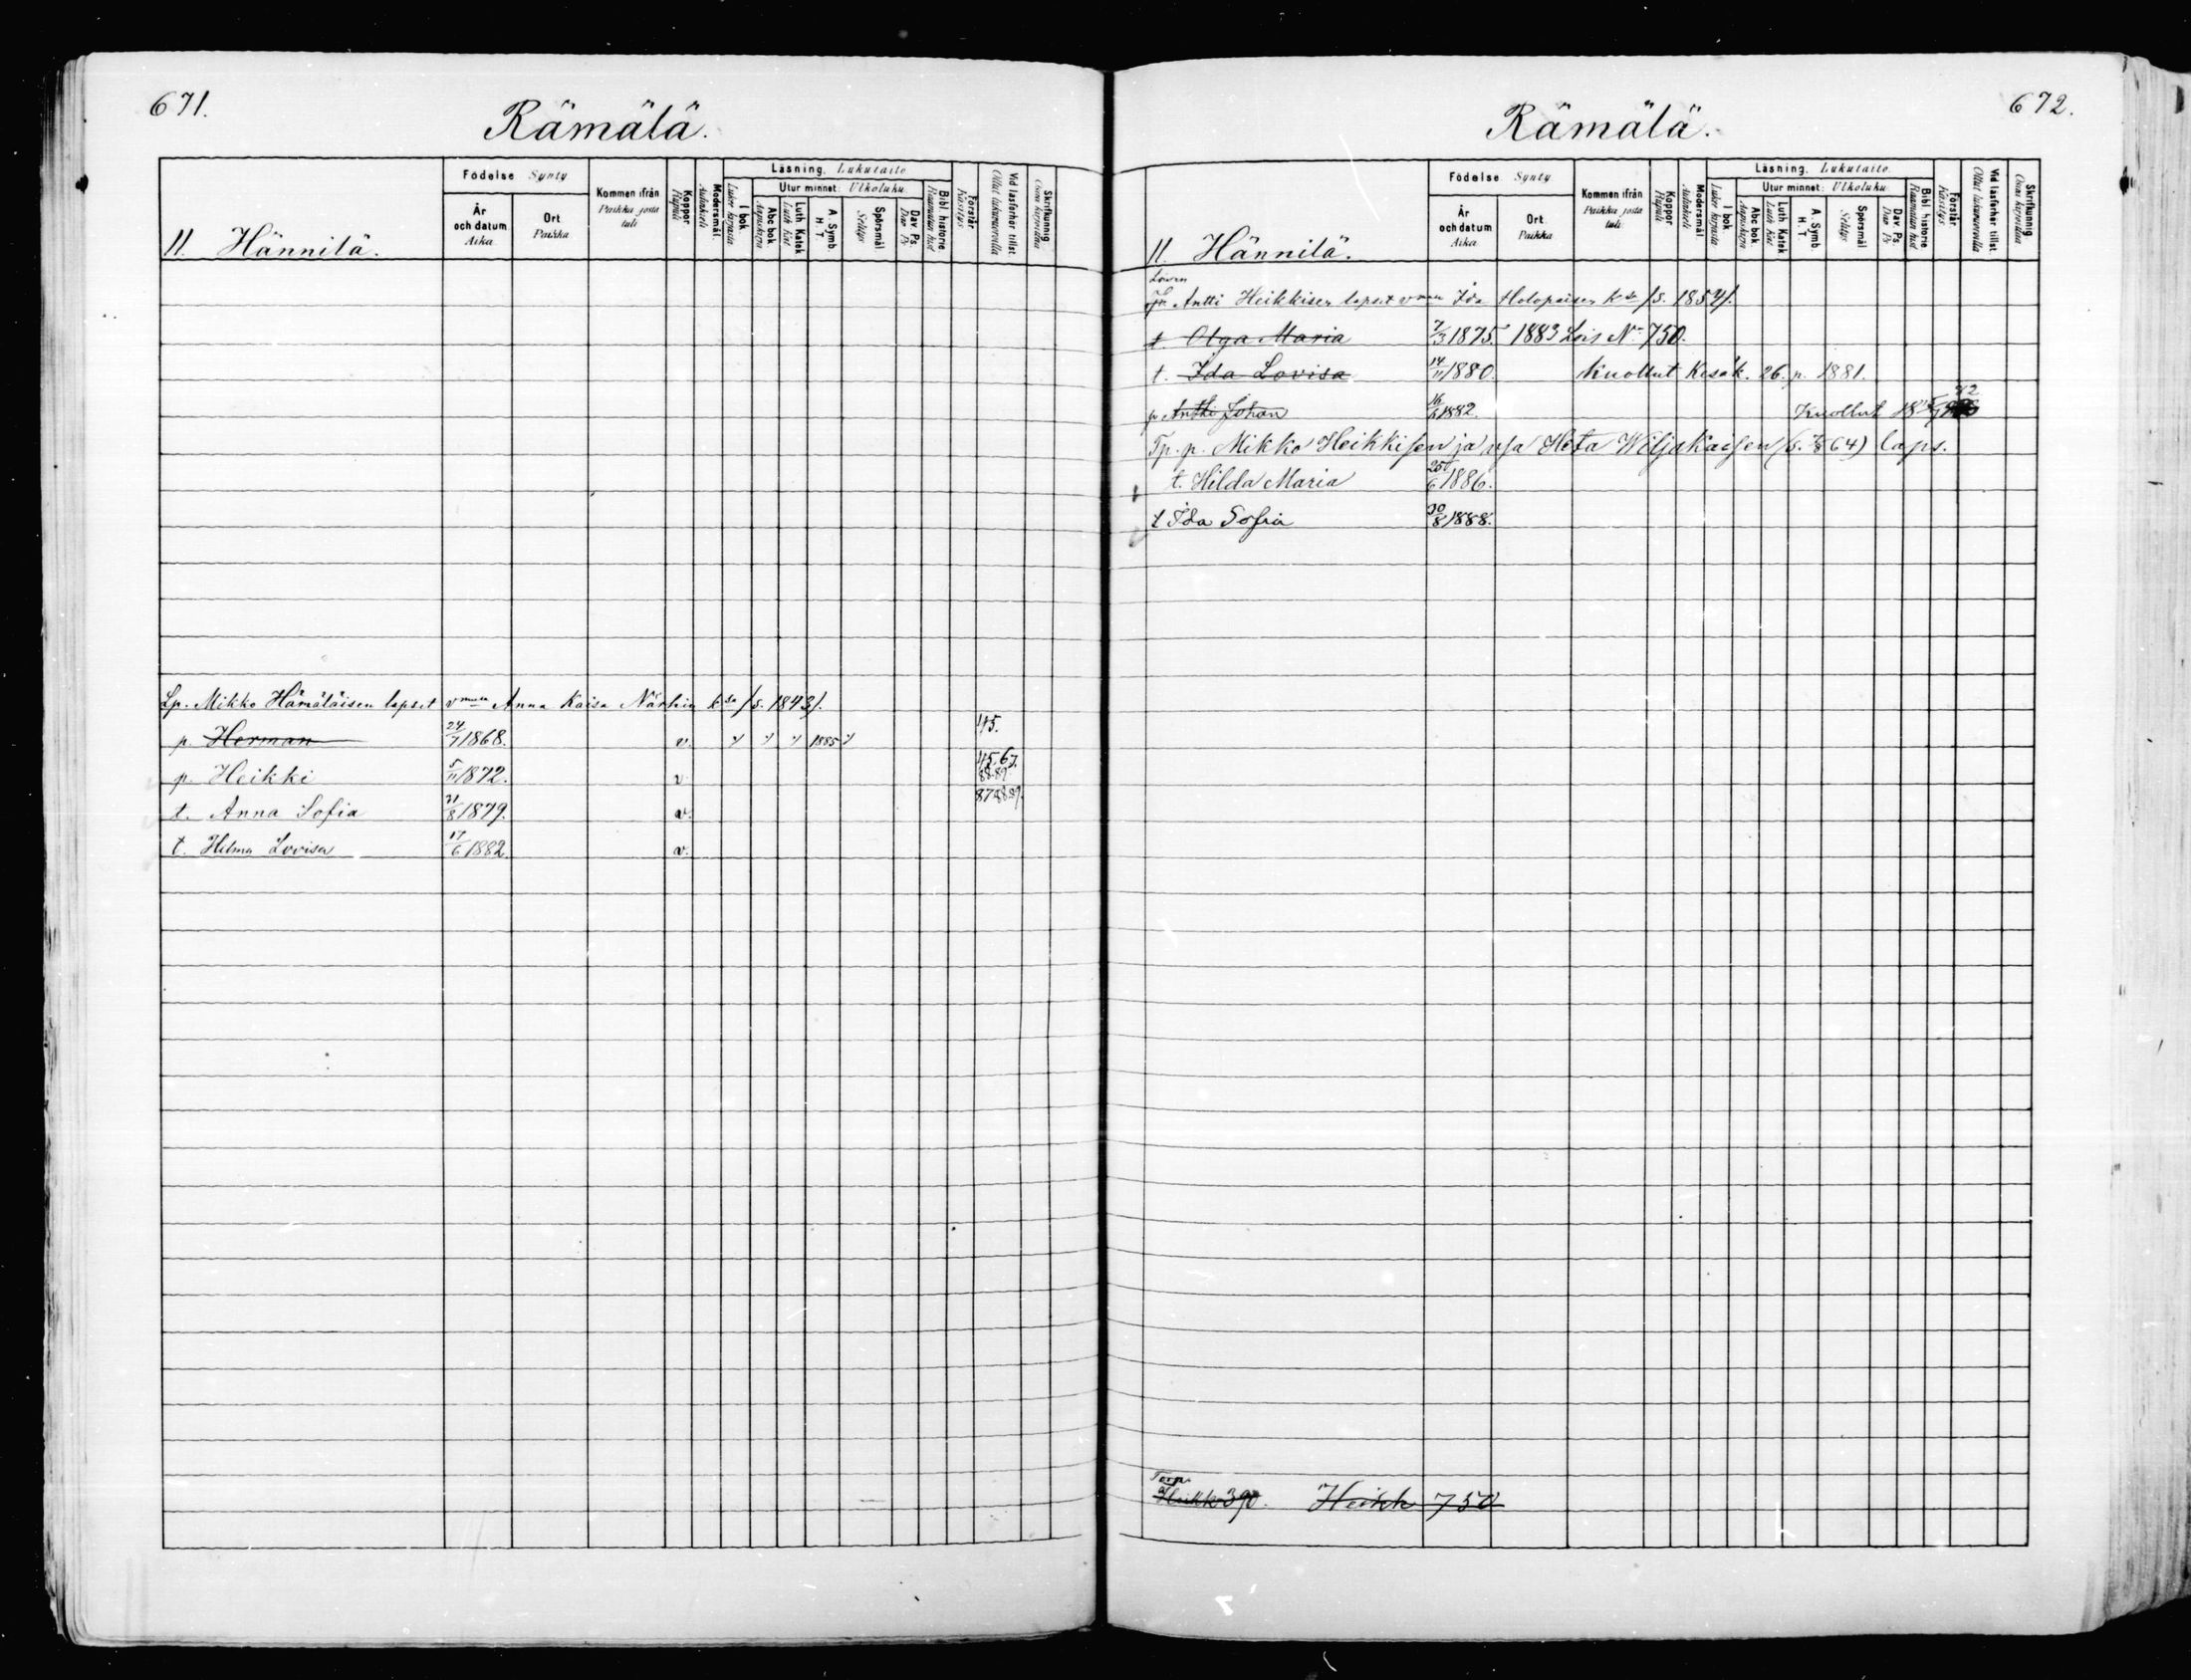 671.
Rämälä.
Födelse Synty
År och datum Aika
Ort Paikka
Kommen ifrån Paikka josta tuli
Koppor Rupuli
Modersmål. Äidinkieli
Läsning. Lukutaito
I bok
Utur minnet: Ulkoluku
Abc bok Aapiskirja
Luth Katek Luth Kat
A. Symb. H. T.
Spörsmål Selitys
Dav. Ps. Dav Ps
Bibl. historie Raamatun hist
Förstår Käsitys
Vid läsförhör tillst. Ollut lukuvuorolla
Skrifkunnig Osaa kirjoittaa
11. Hännilä.
Lp. Mikko Hämäläisen lapset vmon Anna Kaisa Närhin kssa /s. 1843/.
p. Herman 24/7 1868. v. 1885 45.
p. Heikki 5/11 1872. v. 45.67. 88.89.
t. Anna Sofia 21/8 1879. v. 87.88.89.
t. Helma Lovisa 17/6 1882. v.
672.
Rämälä.
Födelse Synty
År och datum Aika
Ort Paikka
Kommen ifrån Paikka josta tuli
Koppor Rupuli
Modersmål Äidinkieli
Läsning. Lukutaito
I bok
Utur minnet: Ulkoluku
Abc bok Aapiskirja
Luth Katek Luth Kat
A. Symb. H. T.
Spörsmål Selitys
Dav. Ps. Dav Ps
Bibl. historie Raamatun hist
Förstår Käsitys
Vid läsförhör tillst. Ollut lukuvuorolla
Skrifkunnig Osaa kirjoittaa
11. Hännilä.
Antti Heikkisen lapset vmon Ida Holopaisen kssa /s. 1854/.
t. Olga Maria 7/3 1875. 1883 Lois No 750.
t. Ida Lovisa 14/11 1880. Kuollut Kesäk. 26. p. 1881.
p. Antti Johan 16/6 1882. Kuollut
Tp. p. Mikko Heikkisen ja vsa Heta Wiljakaisen (s. 64) laps.
t. Hilda Maria 25/6 1886.
t Ida Sofia 30/8 1888.
Torp.
Heikk 390. Heikk 750